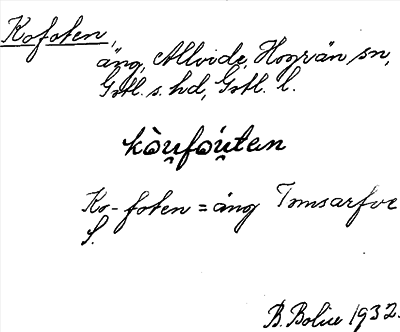 Kofoten,
äng, Allvide, Hogrän sn,
Gotl. s. hd, Gotl. l.
kòu̯fóu̯tən
Ko-foten = äng Tomsarfve
S.
B. Bolin 1932.